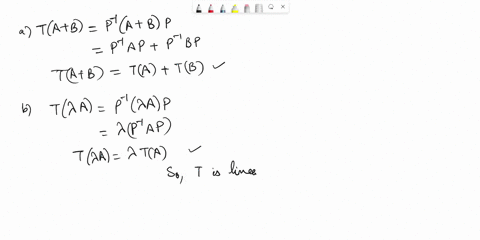 a) T(A+B) = P⁻¹(A+B)P
= P⁻¹AP + P⁻¹BP
T(A+B) = T(A) + T(B) ✓
b) T(λA) = P⁻¹(λA)P
= λ(P⁻¹AP)
T(λA) = λT(A) ✓
So, T is linea